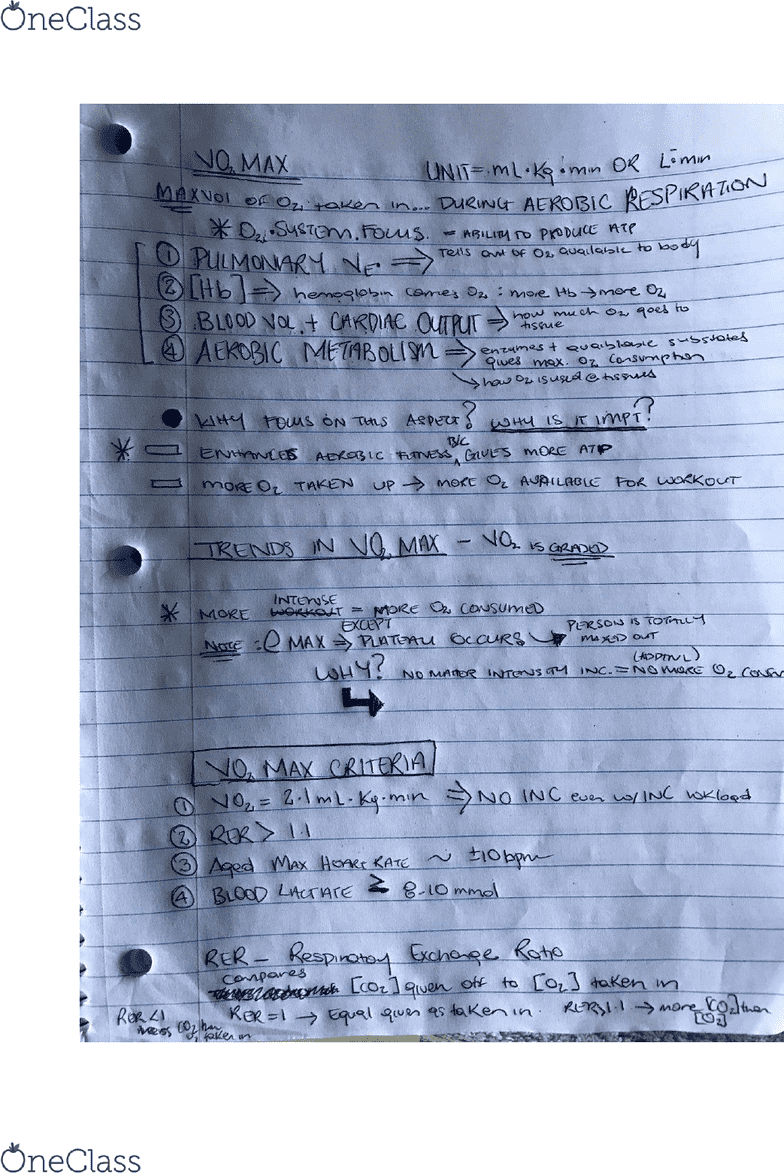 OneClass
VO2 MAX UNIT = mL·Kg·min OR L·min
MAX VOl OF O2 taken in... DURING AEROBIC RESPIRATION
* O2 · SYSTEM. FOCUS. = ABILITY TO PRODUCE ATP
① PULMONARY VE ⇒ Tells amt of O2 available to body
② [Hb] ⇒ hemoglobin carries O2 : more Hb → more O2
③ BLOOD VOL. + CARDIAC OUTPUT ⇒ how much O2 goes to tissue
④ AEROBIC METABOLISM ⇒ enzymes + available substrates
gives max. O2 consumption
↳ how O2 is used @ tissues
● WHY FOCUS ON THIS ASPECT? WHY IS IT IMPT?
* ENHANCES AEROBIC FITNESS, B/C GIVES MORE ATP
MORE O2 TAKEN UP → MORE O2 AVAILABLE FOR WORKOUT
TRENDS IN VO2 MAX - VO2 IS GRADED
* MORE INTENSE = MORE O2 CONSUMED
NOTE: EXCEPT @ MAX ⇒ PLATEAU OCCURS → PERSON IS TOTALLY MAXED OUT
WHY? NO MATTER INTENSITY INC. = NO MORE (ADDTN'L) O2
VO2 MAX CRITERIA
① VO2 = 2.1 mL·Kg·min ⇒ NO INC even w/ INC wkload
② RER > 1.1
③ Aged Max HEART RATE ~ ±10bpm
④ BLOOD LACTATE ≥ 8-10 mmol
RER - Respiratory Exchange Ratio
compares [CO2] given off to [O2] taken in
RER<1 RER=1 → Equal given as taken in. RER>1.1 → more [CO2] then [O2]
taken in
OneClass